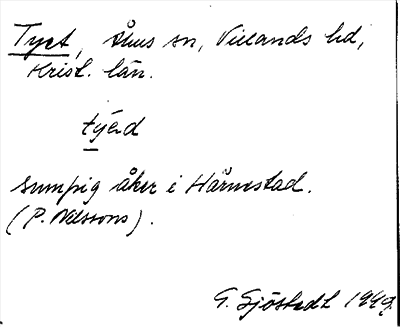 Tyet, Åhus sn, Villands hd,
Krist. län.
týed
sumpig åker i Härnestad.
(P. Nilssons).
G. Sjöstedt 1949.